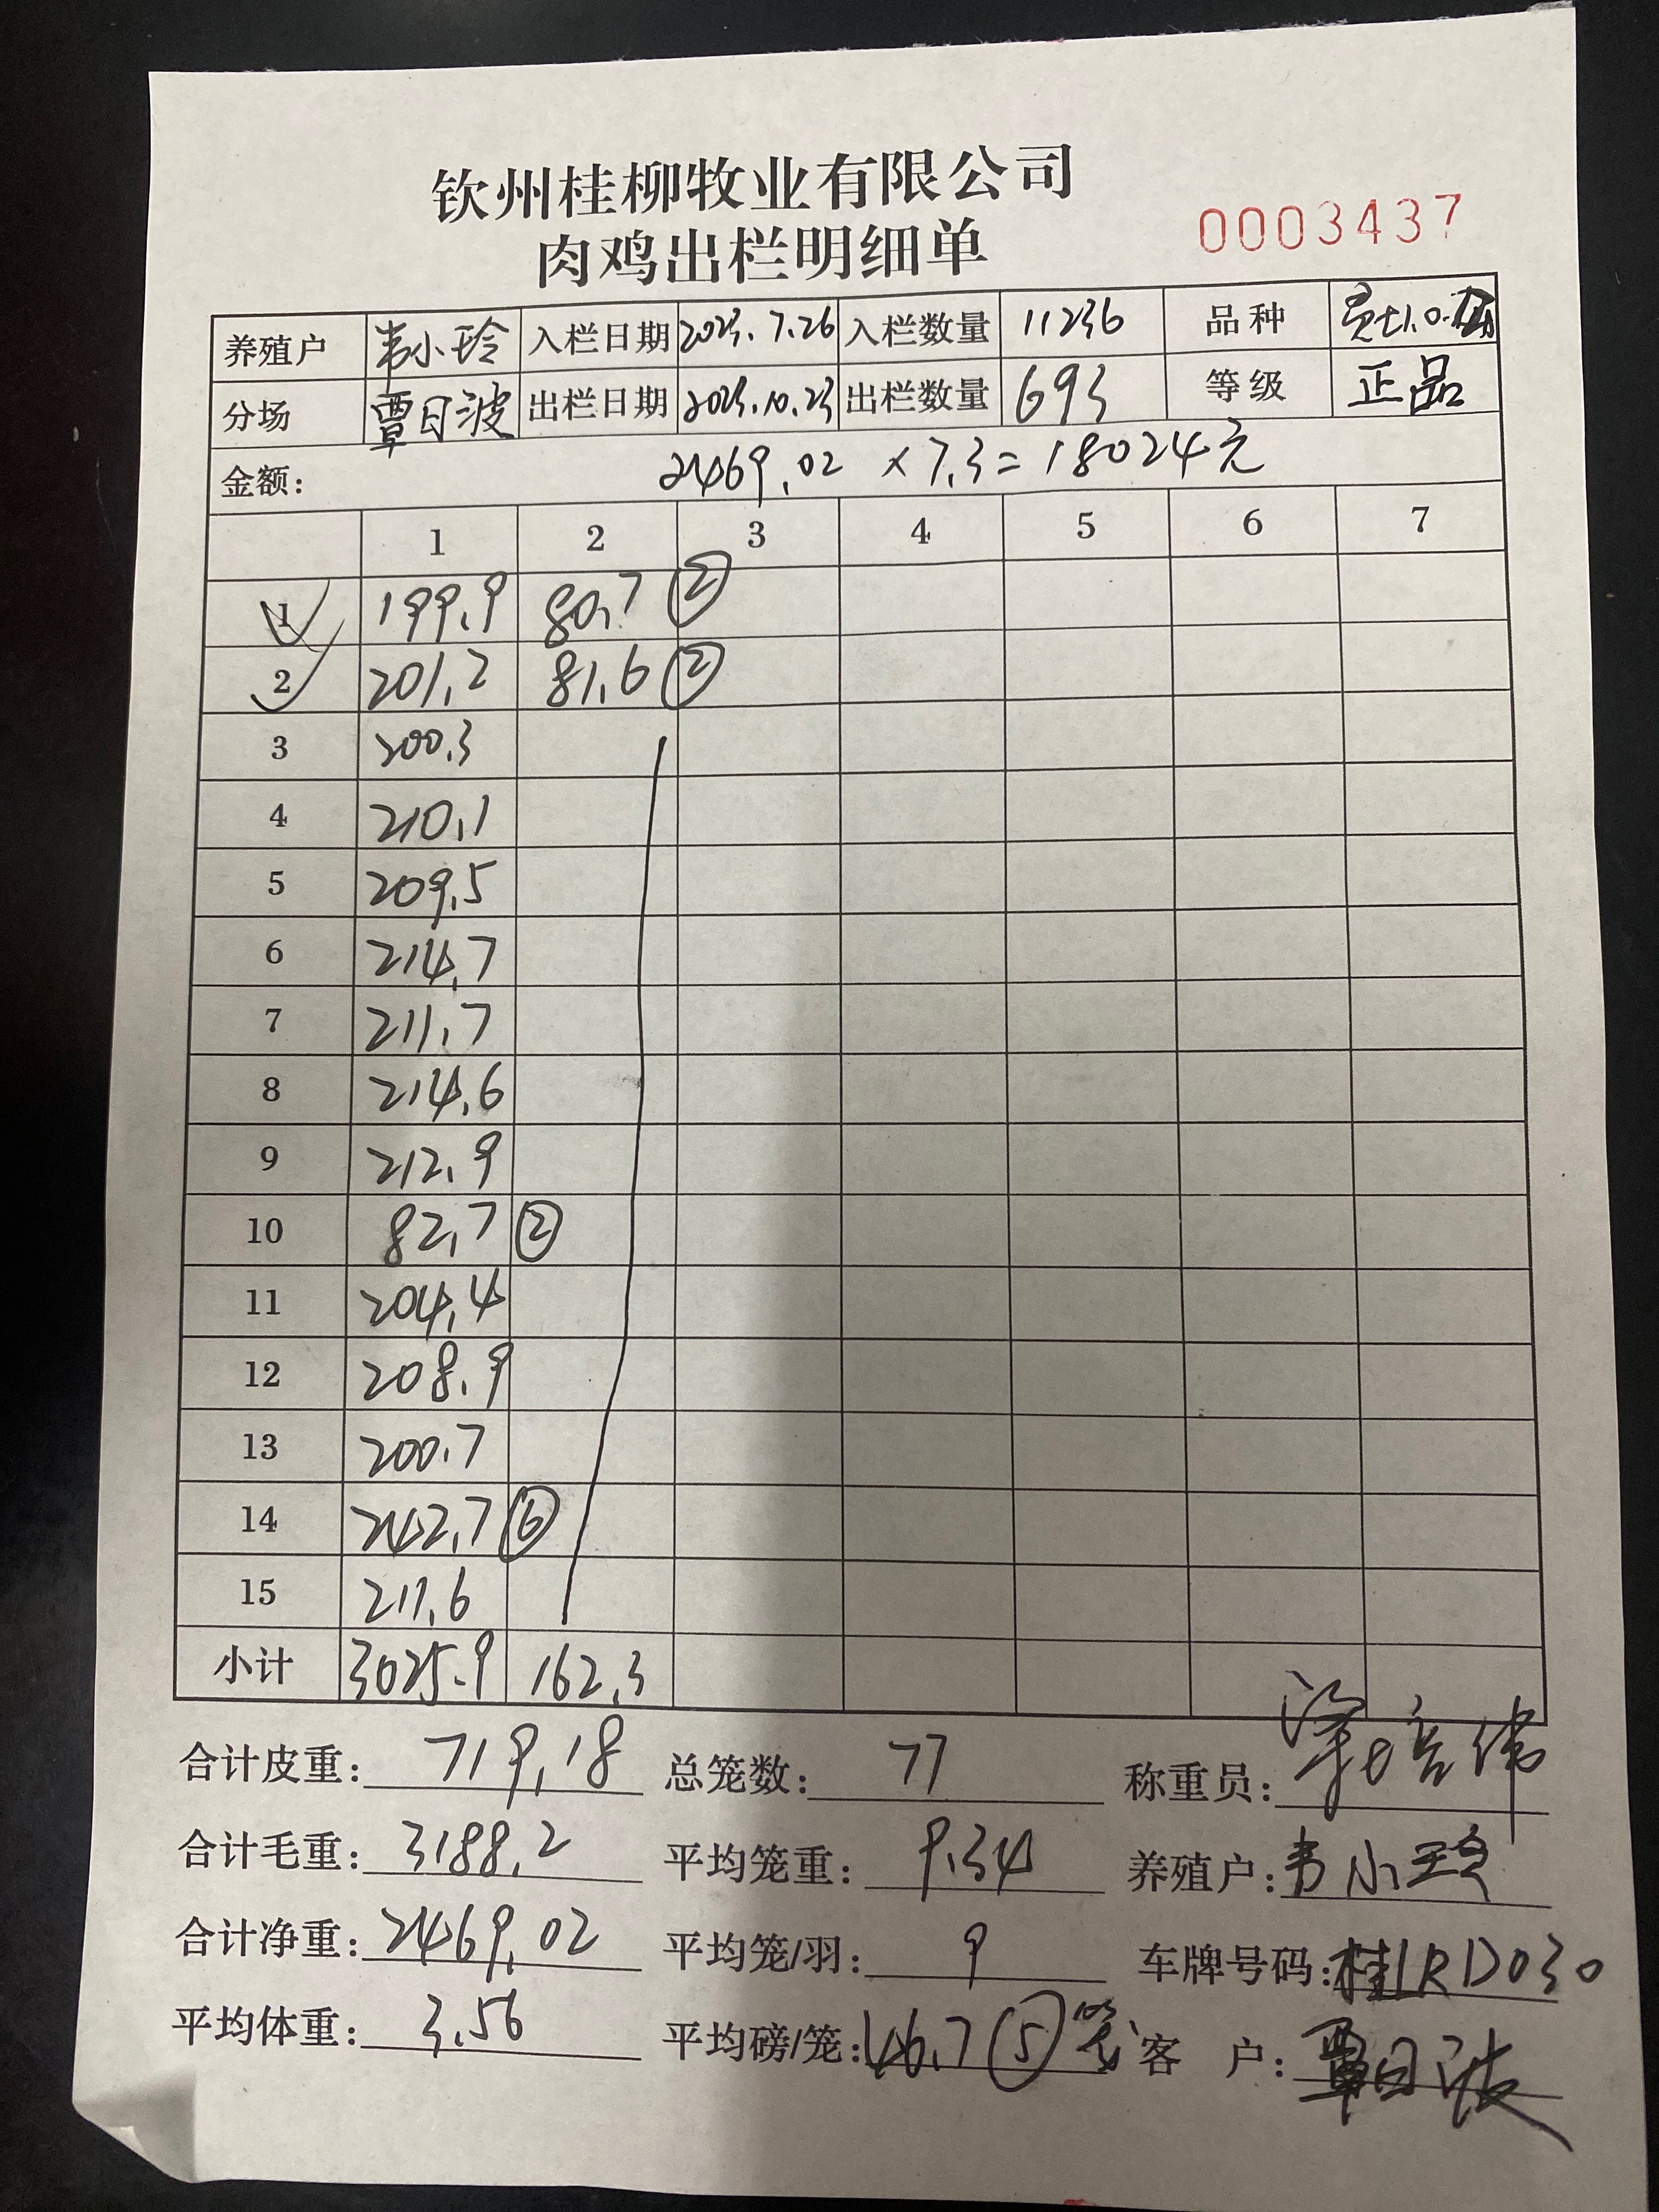 钦州桂柳牧业有限公司
肉鸡出栏明细单
0003437
养殖户 韦小玲 入栏日期 2023.7.26 入栏数量 11236 品种
分场 覃日波 出栏日期 2023.10.23 出栏数量 693 等级 正品
金额: 2469.02 × 7.3 = 18024元
1 2 3 4 5 6 7
1 199.9 80.7 ②
2 201.2 81.6 ②
3 200.3
4 210.1
5 209.5
6 214.7
7 211.7
8 214.6
9 212.9
10 82.7 ②
11 204.4
12 208.9
13 200.7
14 242.7 ⑥
15 211.6
小计 3025.9 162.3
合计皮重: 719.18 总笼数: 77 称重员:
合计毛重: 3188.2 平均笼重: 9.34 养殖户: 韦小玲
合计净重: 2469.02 平均笼/羽: 9 车牌号码: 桂LRD030
平均体重: 3.56 平均磅/笼: 46.7 ⑤笼 客 户: 覃日波